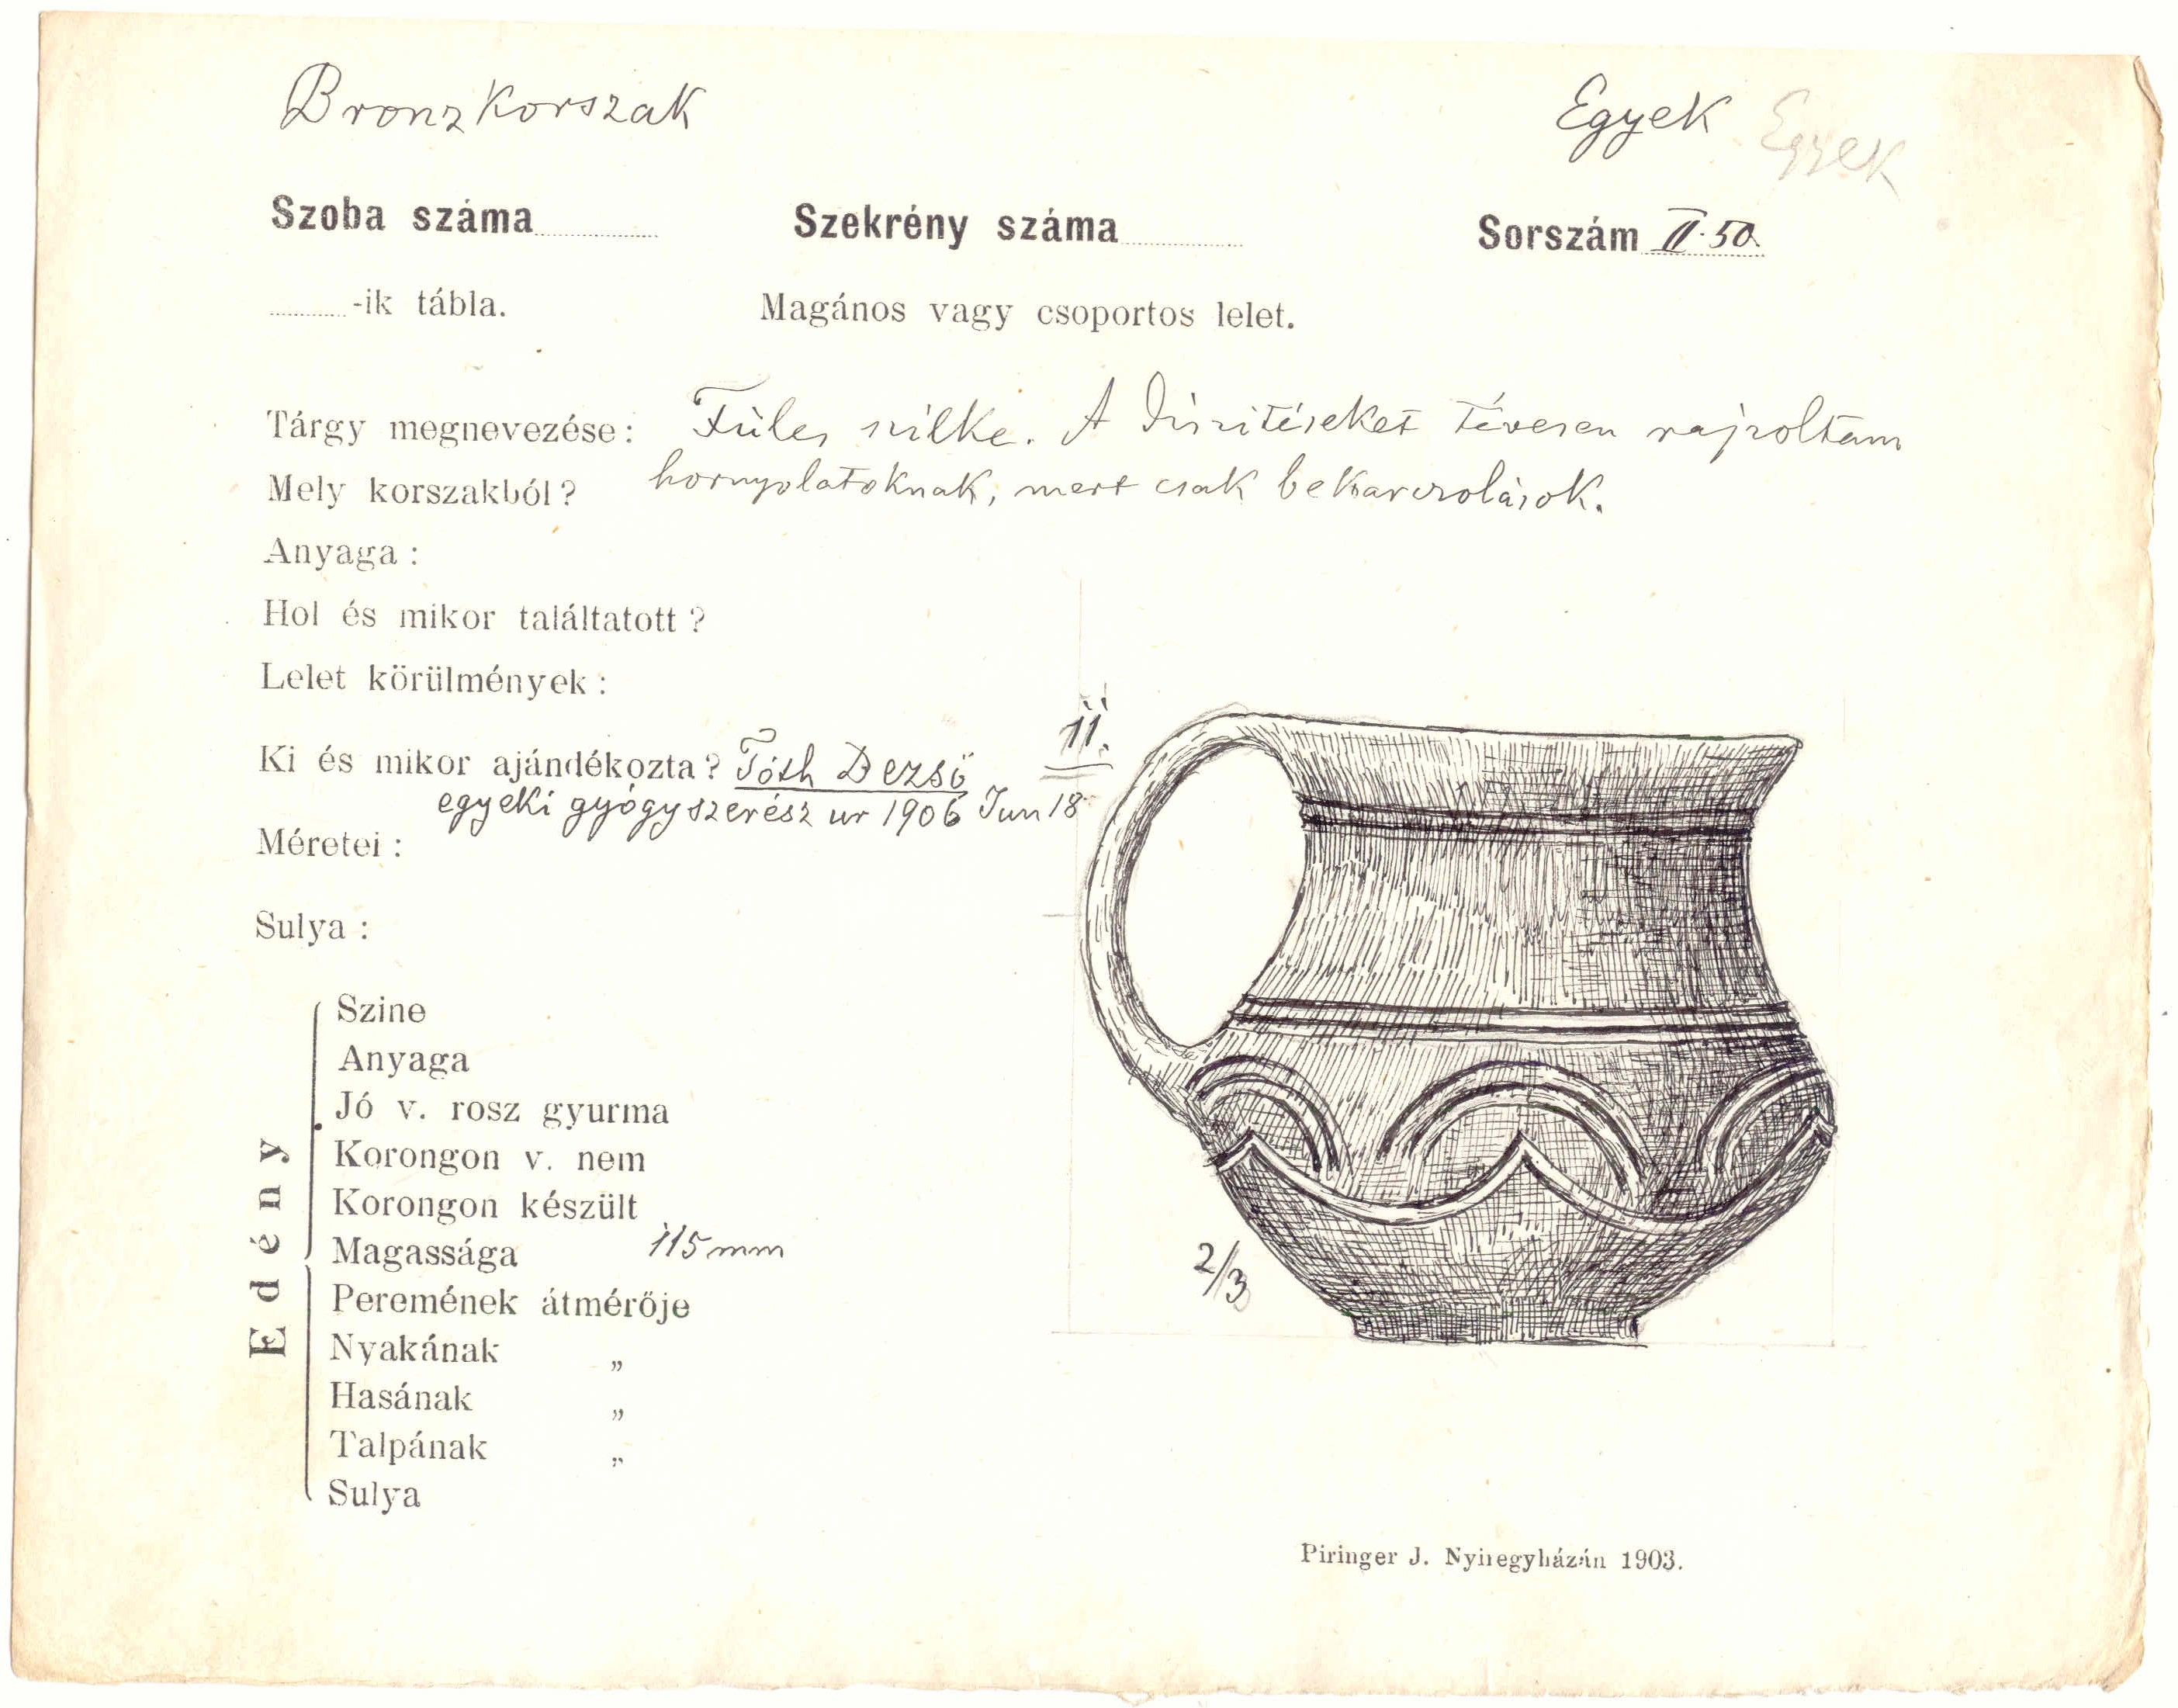 Bronzkorszak
Egyek Egyek
Szoba száma Szekrény száma Sorszám II. 50.
-ik tábla. Magános vagy csoportos lelet.
Tárgy megnevezése: Füles szilke. A díszitéseket tévesen rajzoltam
Mely korszakból? hornyolatoknak, mert csak bekarczolások.
Anyaga:
Hol és mikor találtatott?
Lelet körülmények:
Ki és mikor ajándékozta? Tóth Dezső
egyeki gyógyszerész ur 1906 Jun 18
11.
Méretei:
Sulya:
Edény
Szine
Anyaga
Jó v. rosz gyurma
Korongon v. nem
Korongon készült
Magassága 115 mm
Peremének átmérője
Nyakának „
Hasának „
Talpának „
Sulya
2/3
Piringer J. Nyiregyházán 1903.